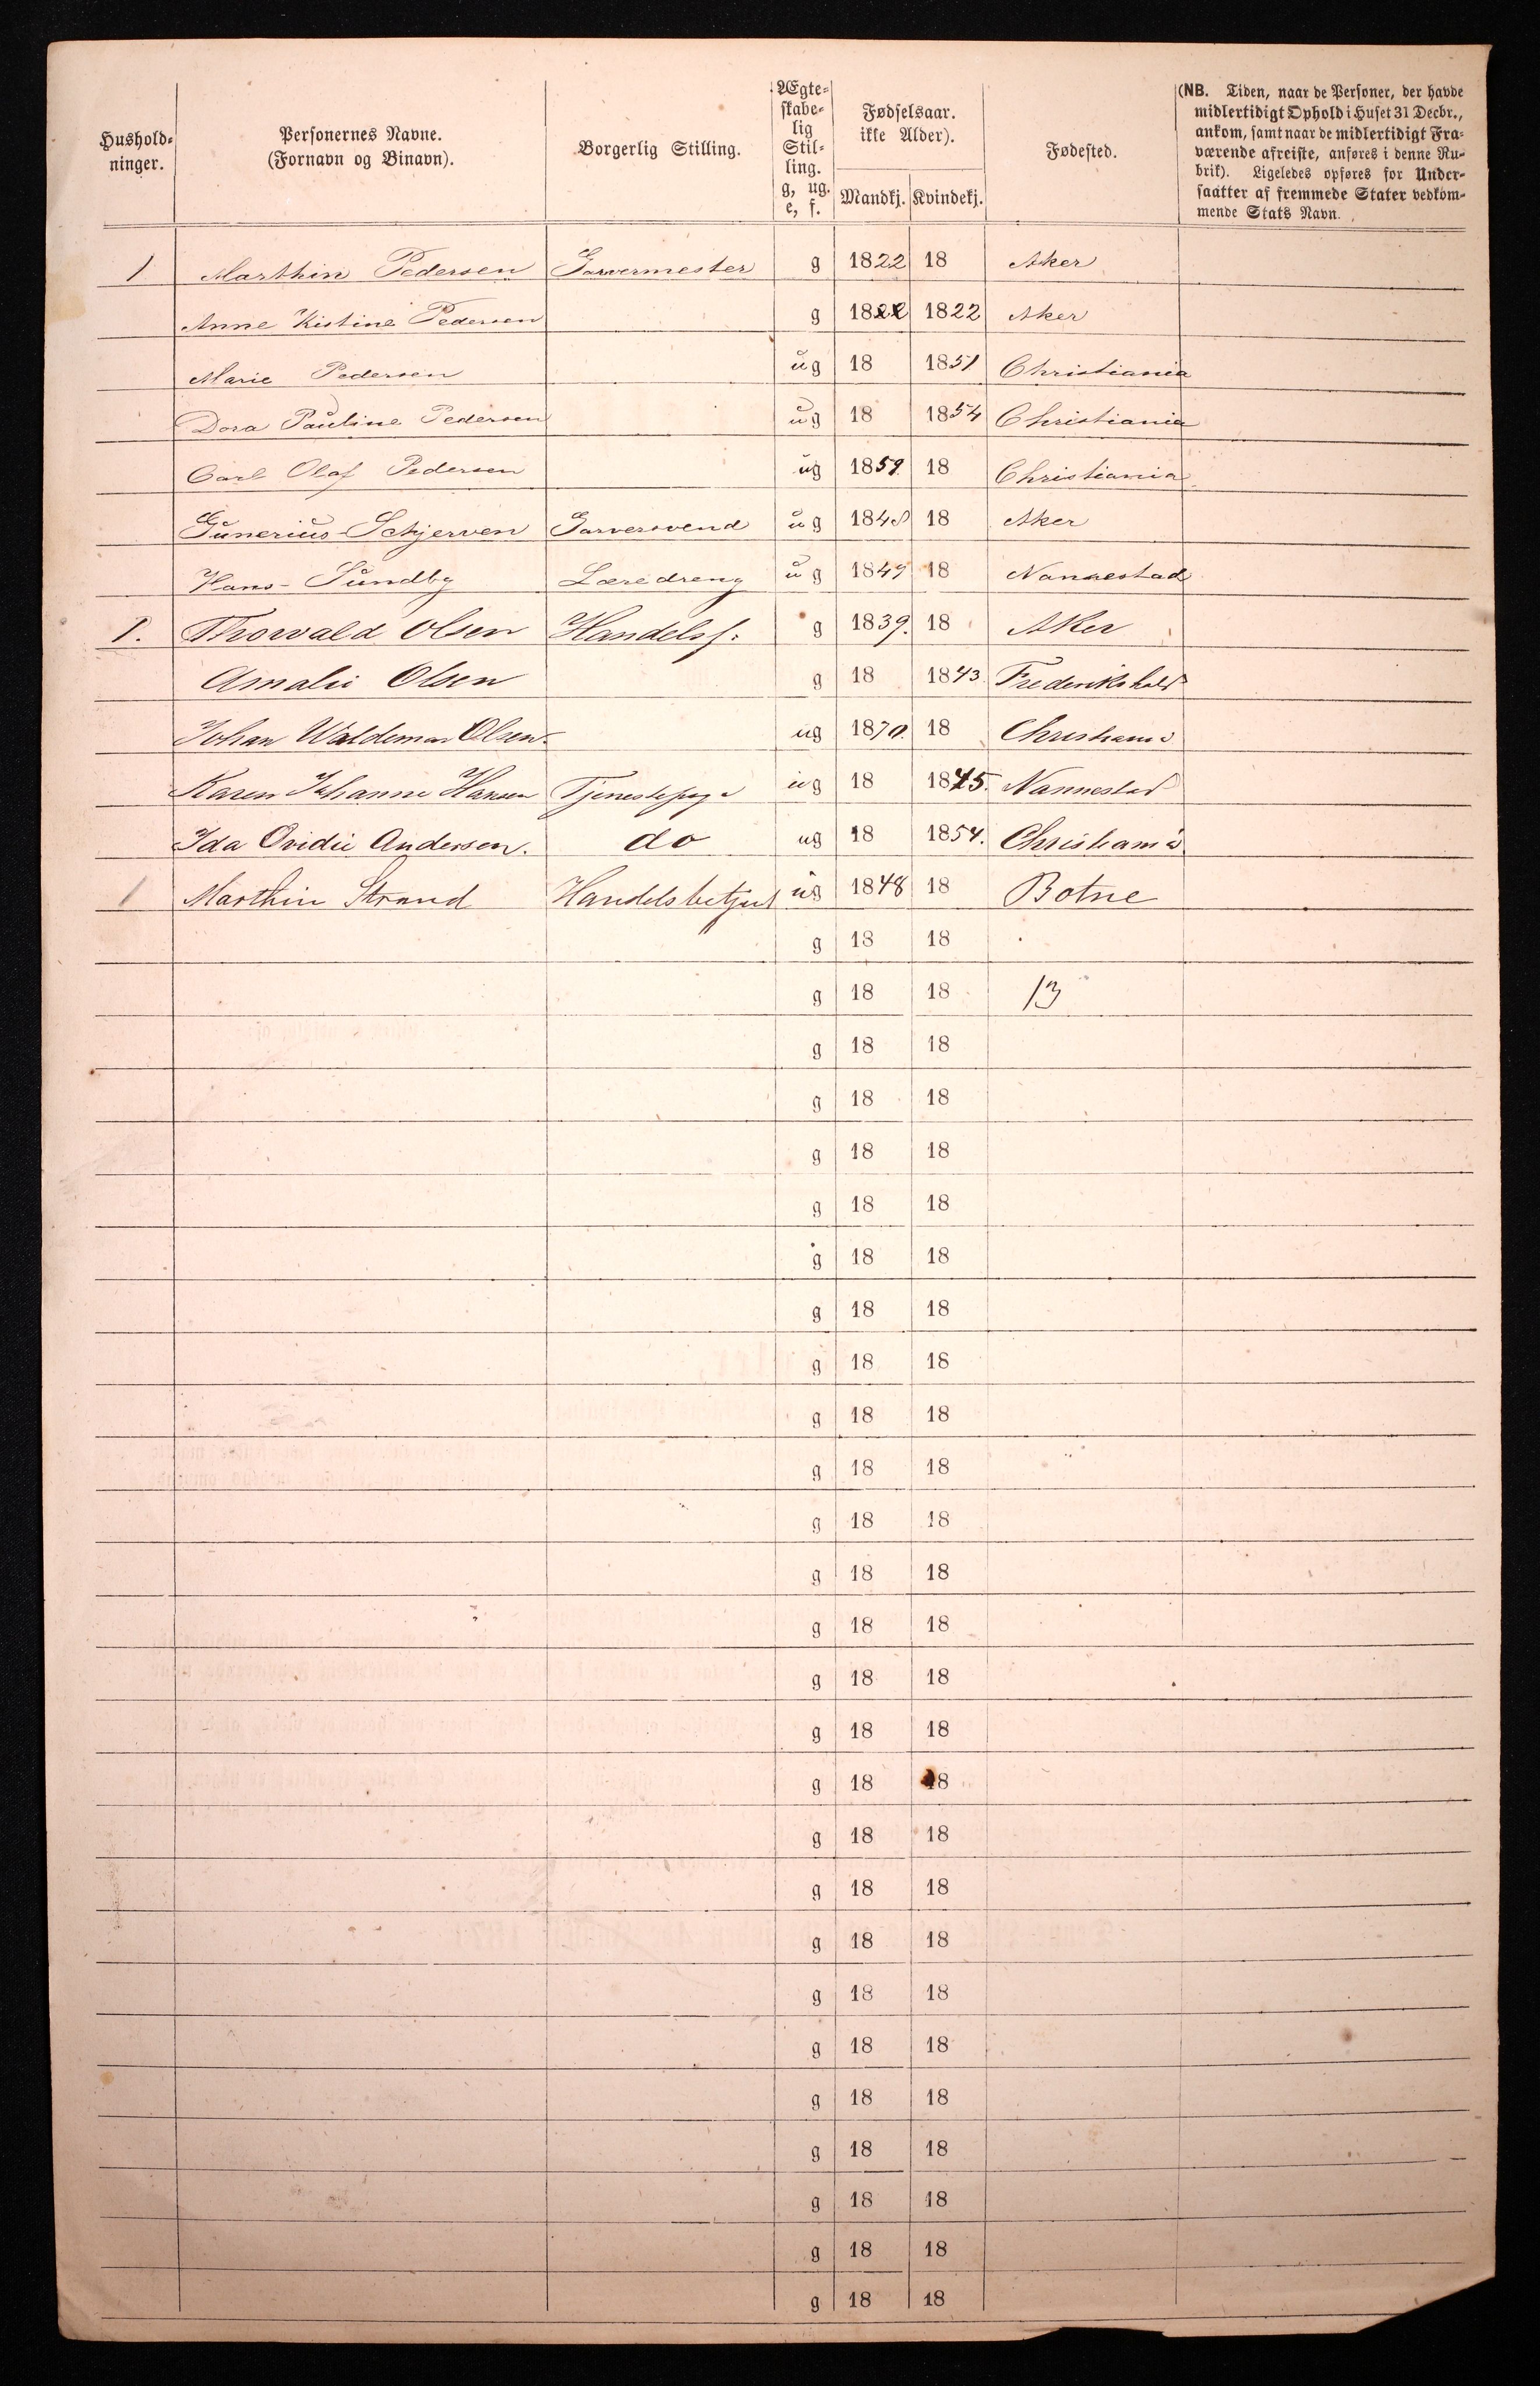 Hushold-
ninger.
Personernes Navne.
(Fornavn og Binavn).
Borgerlig Stilling.
Ægte-
skabe-
lig
Stil-
ling.
g, ug.
e, f.
Fødselsaar.
ikke Alder).
Mandkj. Kvindekj.
Fødested.
(NB. Tiden, naar de Personer, der havde
midlertidigt Ophold i Huset 31 Decbr.,
ankom, samt naar de midlertidigt Fra-
værende afreiste, anføres i denne Ru-
brik). Ligeledes opføres for Under-
saatter af fremmede Stater vedkom-
mende Stats Navn.
1 Marthin Pedersen Garvermester g 1822 18 Aker
Anne Kistine Pedersen g 1822 1822 Aker
Marie Pedersen ug 18 1851 Christiania
Dora Pauline Pedersen ug 18 1854 Christiania
Carl Olaf Pedersen ug 1859. 18 Christiania
Gunerius Schjerven Garversvend ug 1848 18 Aker
Hans Sundby Læredreng ug 1849 18 Nannestad
1. Thorvald Olsen Handelsf: g 1839. 18 Aker
Amalie Olsen g 18 1843. Frederikshald
Johan Waldemar Olsen. ug 1870. 18 Christiania
Karen Johanne Hansen Tjenestepige ug 18 1845. Nannestad
Ida Ovidie Andersen. do ug 18 1854. Christiania
1 Marthin Strand Handelsbetjent ug 1848 18 Botne
g 18 18
g 18 18 13
g 18 18
g 18 18
g 18 18
g 18 18
g 18 18
g 18 18
g 18 18
g 18 18
g 18 18
g 18 18
g 18 18
g 18 18
g 18 18
g 18 18
g 18 18
g 18 18
g 18 18
g 18 18
g 18 18
g 18 18
g 18 18
g 18 18
g 18 18
g 18 18
g OK 18 18